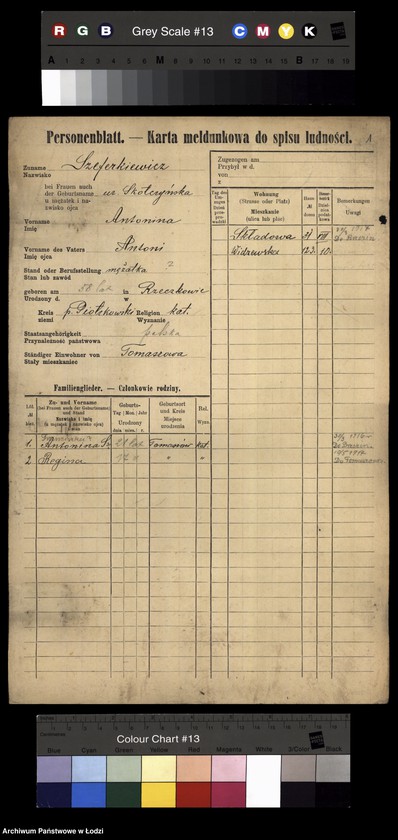 R G B Grey Scale #13 C M Y K
A 1 2 3 4 5 6 M 8 9 10 11 12 13 14 15 B 17 18 19
Personenblatt. — Karta meldunkowa do spisu ludności.
Zuname
Nazwisko
Szeferkiewicz
bei Frauen auch
der Geburtsname
u mężatek i na-
zwisko ojca
ur. Skolczyńska
Vorname
Imię
Antonina
Vorname des Vaters
Imię ojca
Antoni
Stand oder Berufsstellung
Stan lub zawód
mężatka
geboren am
Urodzony d.
58 lat
in
w
Rzeczkowie
Kreis
ziemi
p. Piotrkowski
Religion
Wyznanie
kat.
Staatsangehörigkeit
Przynależność państwowa
polska
Ständiger Einwohner von
Stały mieszkaniec
Tomaszowa
Zugezogen am
Przybył w d.
von
z
Wohnung
(Strasse oder Platz)
Mieszkanie
(ulica lub plac)
Haus
№
domu
Bemerkungen
Uwagi
Składowa 31 VIII
Widzewska 123 10
Familienglieder. — Członkowie rodziny.
Zu- und Vorname
(bei Frauen auch der Geburtsname)
und Stand
Nazwisko i imię
(u mężatek i nazwisko ojca)
Geburts-
Tag | Mon. | Jahr
Urodzony
dnia | mies. | r.
Geburtsort
und Kreis
Miejsce
urodzenia
Rel.
Wyzn.
1. Antonina Sz. 21 lat Tomaszów kat.
2 Regina " "
Do Tomaszowa
Colour Chart #13
Blue Cyan Green Yellow Red Magenta White 3/Color Black
Archiwum Państwowe w Łodzi